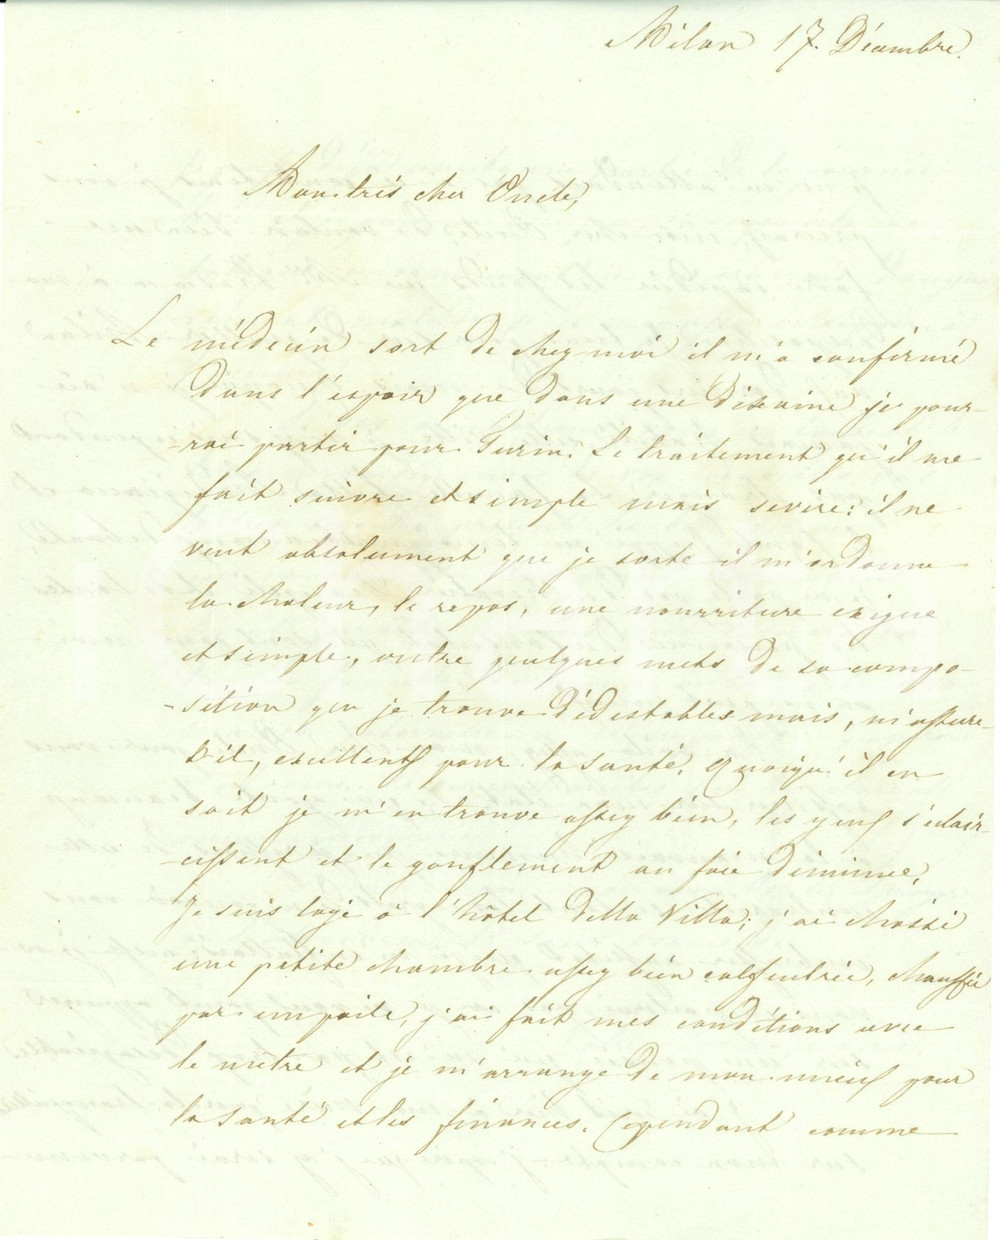 Milan 17. Décembre.
Mon très cher Oncle,
Le médecin sort de chez moi il m'a confirmé
dans l'espoir que dans une dixaine je pour-
-rai partir pour Turin. Le traitement qu'il me
fait suivre est simple mais sevère: il ne
veut absolument que je sorte il m'ordonne
la chaleur, le repos, une nourriture exigue
et simple, outre quelques mets de sa compo-
-sition que je trouve dédestables mais, m'assure-
t-il, excellents pour la santé. Quoiqu'il en
soit je m'en trouve assez bien, les yeux s'éclair-
-cissent et le gonflement au foie diminue.
Je suis logé à l'hôtel della Villa; j'ai choisi
une petite chambre assez bien calfeutrée, chauffée
par un poile, j'ai fait mes conditions avec
le maître et je m'arrange de mon mieux pour
la santé et les finances. Cependant comme